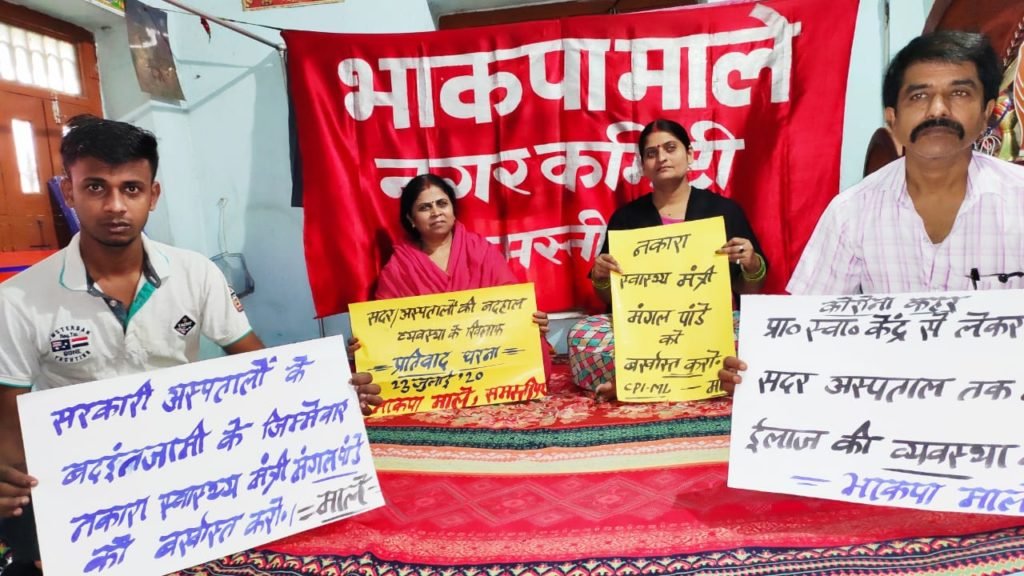 भाकपा माले
नगर कमिटी
मस्ती
सरकारी अस्पतालों के
बदइंतजामी के जिम्मेवार
नकारा स्वास्थ्य मंत्री मंगल पांडे
को बर्खास्त करो। = माले =
सदर अस्पतालों की बदहाल
व्यवस्था के खिलाफ
= प्रतिवाद धरना =
23 जुलाई '20
भाकपा माले, समस्तीपुर
नकारा
स्वास्थ्य मंत्री
मंगल पांडे
को
बर्खास्त करो
CPI-ML
कोरोना कहर
प्रा० स्वा० केंद्र से लेकर
सदर अस्पताल तक
ईलाज की व्यवस्था
= भाकपा माले